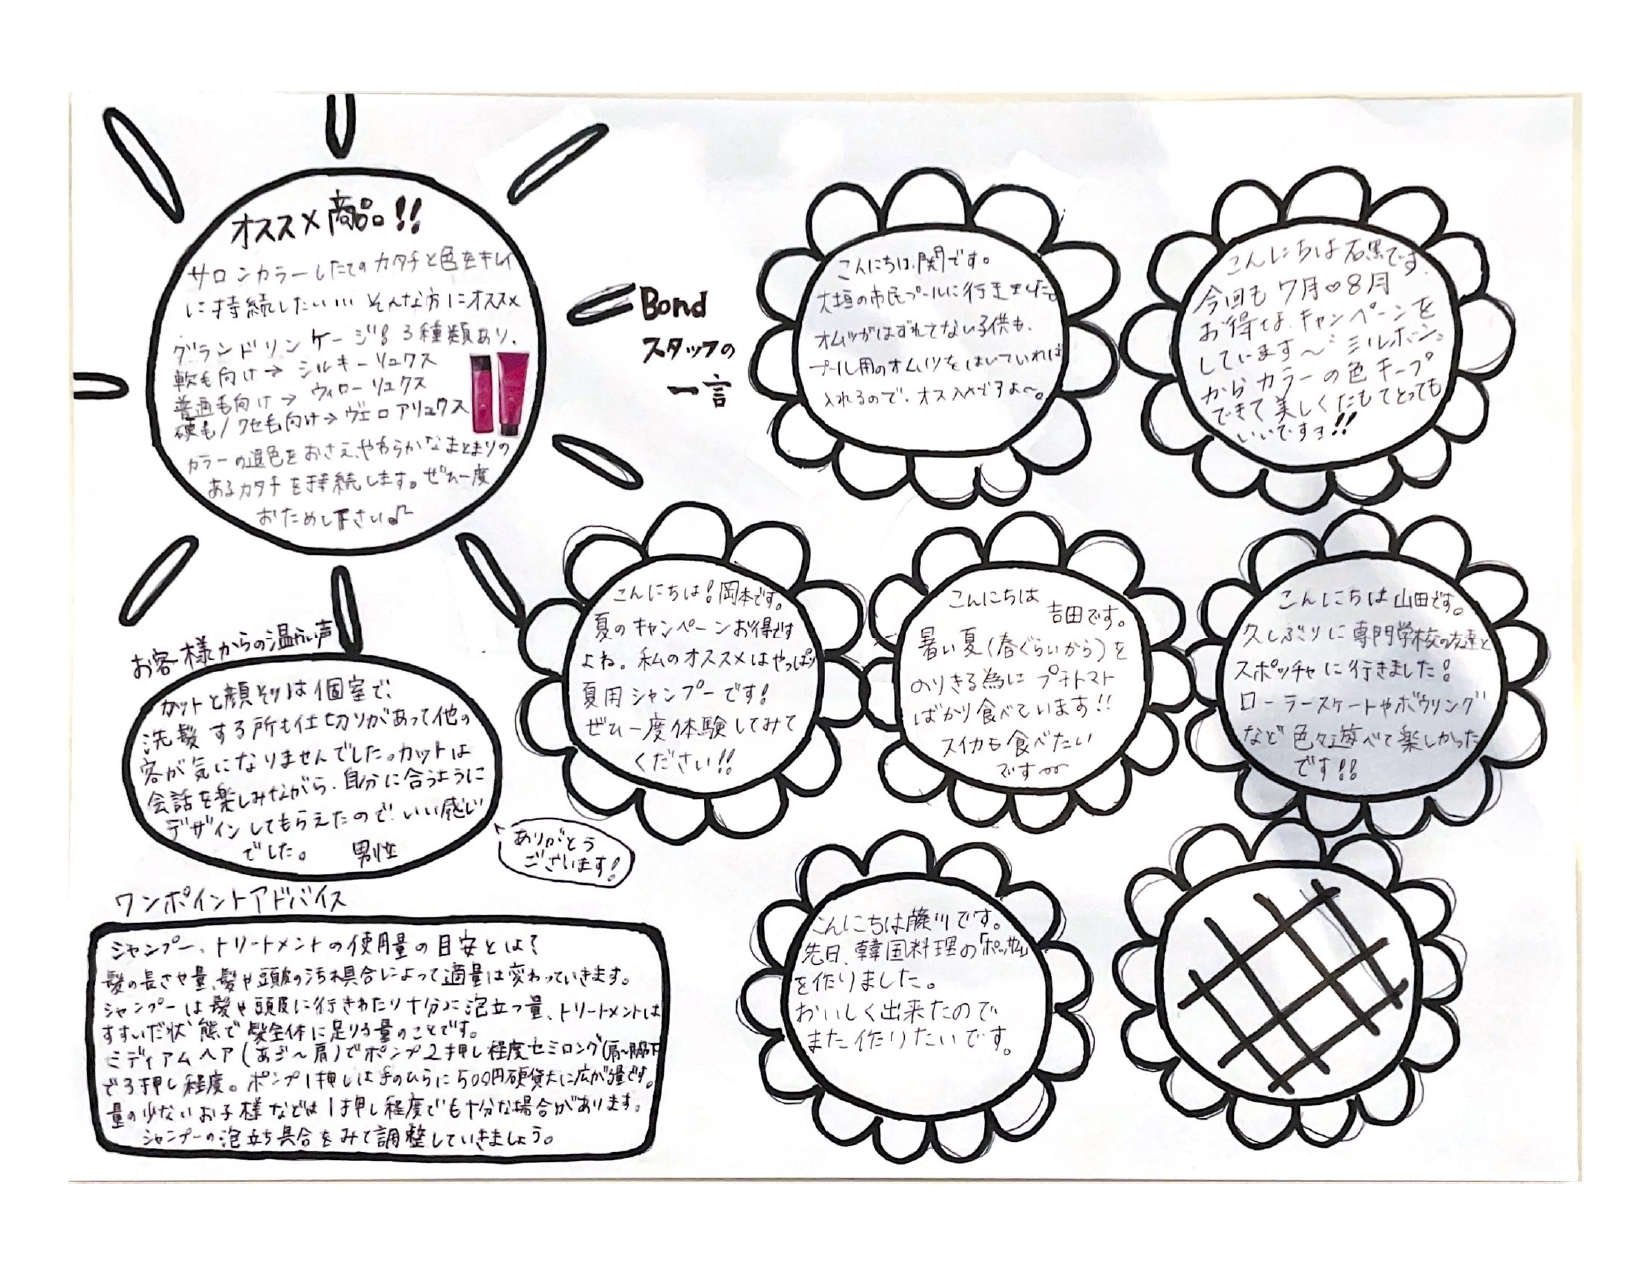 オススメ商品!!
サロンカラーしたてのカタチと色をキレイ
に持続したい… そんな方にオススメ
グランドリンケージ! 3種類あり、
軟毛向け→ シルキーリュクス
普通毛向け→ ウィローリュクス
硬毛/クセ毛向け→ヴェロアリュクス
カラーの退色をおさえ、やわらかなまとまりの
あるカタチを持続します。ぜひ一度
おためし下さい♪
Bond
スタッフの
一言
こんにちは、関です。
大垣の市民プールに行きました。
オムツがはずれてない子供も、
プール用のオムツをはいていれば
入れるので、オススメですよ〜。
こんにちは石黒です。
今回も7月♡8月
お得な、キャンペーンを
しています〜 ミルボン。
からカラーの色キープ
できて美しくたもてとっても
いいですョ!!
こんにちは!岡本です。
夏のキャンペーンお得です
よね。私のオススメはやっぱり
夏用シャンプーです!
ぜひ一度体験してみて
ください!!
こんにちは
吉田です。
暑い夏(春ぐらいから)を
のりきる為にプチトマト
ばかり食べています!!
スイカも食べたい
です〜
こんにちは山田です。
久しぶりに専門学校の友達と
スポッチャに行きました!
ローラースケートやボウリング
など色々遊べて楽しかった
です!!
お客様からの温かい声
カットと顔そりは個室で、
洗髪する所も仕切りがあって他の
客が気になりませんでした。カットは
会話を楽しみながら、自分に合うように
デザインしてもらえたので、いい感じ
でした。 男性
ありがとう
ございます!
ワンポイントアドバイス
シャンプー、トリートメントの使用量の目安とは?
髪の長さや量、髪や頭皮の汚れ具合によって適量は変わっていきます。
シャンプーは髪や頭皮に行きわたり十分に泡立つ量、トリートメントは
すすいだ状態で髪全体に足りる量のことです。
ミディアムヘア(あご〜肩)でポンプ2押し程度セミロング(肩〜脇下)
で3押し程度。ポンプ1押しは手のひらに500円硬貨大に広がる量です。
量の少ないお子様などは1押し程度でも十分な場合があります。
シャンプーの泡立ち具合をみて調整していきましょう。
こんにちは藤川です。
先日、韓国料理の「ポッサム」
を作りました。
おいしく出来たので
また作りたいです。